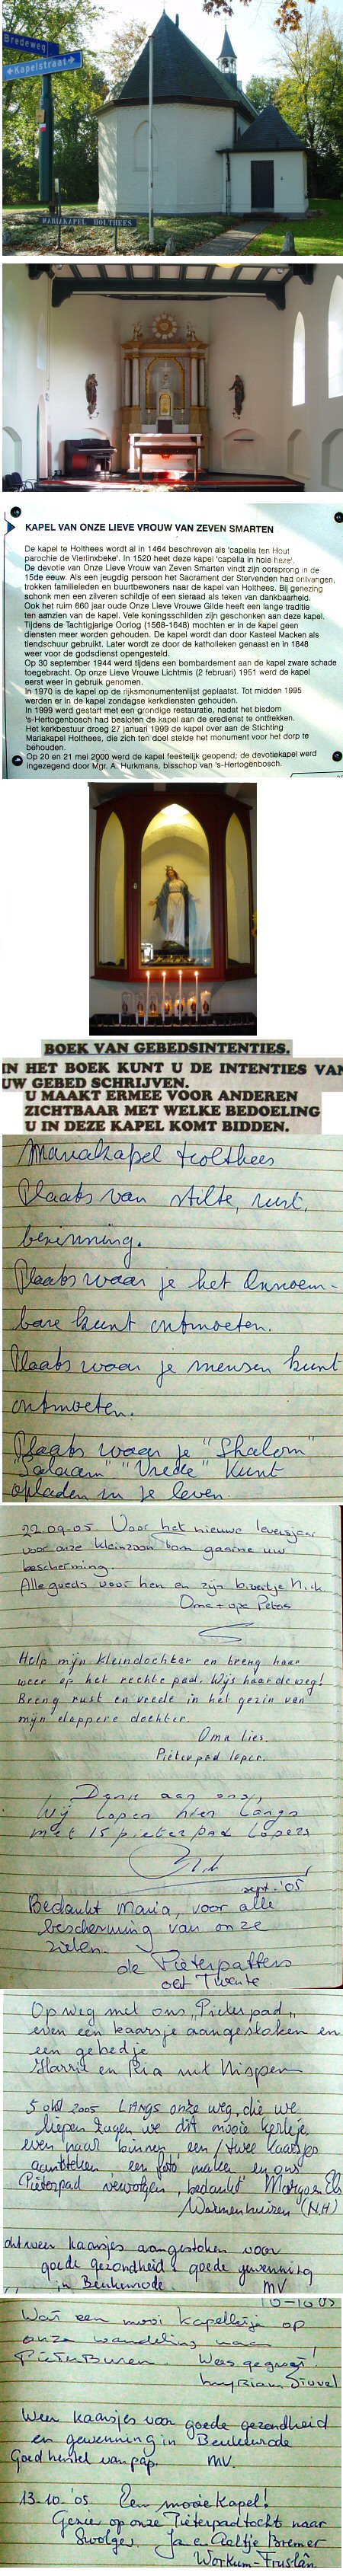 Bredeweg
Kapelstraat
MARIAKAPEL HOLTHEES
KAPEL VAN ONZE LIEVE VROUW VAN ZEVEN SMARTEN
De kapel te Holthees wordt al in 1464 beschreven als 'capella ten Hout
parochie de Vierlinxbeke'. In 1520 heet deze kapel 'capella in hole heze'.
De devotie van Onze Lieve Vrouw van Zeven Smarten vindt zijn oorsprong in de
15de eeuw. Als een jeugdig persoon het Sacrament der Stervenden had ontvangen,
trokken familieleden en buurtbewoners naar de kapel van Holthees. Bij genezing
schonk men een zilveren schildje of een sieraad als teken van dankbaarheid.
Ook het ruim 660 jaar oude Onze Lieve Vrouwe Gilde heeft een lange traditie
ten aanzien van de kapel. Vele koningsschilden zijn geschonken aan deze kapel.
Tijdens de Tachtigjarige Oorlog (1568-1648) mochten er in de kapel geen
diensten meer worden gehouden. De kapel wordt dan door kasteel Macken als
tiendschuur gebruikt. Later wordt ze door de katholieken genaast en in 1848
weer voor de godsdienst opengesteld.
Op 30 september 1944 werd tijdens een bombardement aan de kapel zware schade
toegebracht. Op onze Lieve Vrouw Lichtmis (2 februari) 1951 werd de kapel
eerst weer in gebruik genomen.
In 1970 is de kapel op de rijksmonumentenlijst geplaatst. Tot midden 1995
werden er in de kapel zondagse kerkdiensten gehouden.
In 1999 werd gestart met een grondige restauratie, nadat het bisdom
's-Hertogenbosch had besloten de kapel aan de eredienst te onttrekken.
Het kerkbestuur droeg 27 januari 1999 de kapel over aan de Stichting
Mariakapel Holthees, die zich ten doel stelde het monument voor het dorp te
behouden.
Op 20 en 21 mei 2000 werd de kapel feestelijk geopend; de devotiekapel werd
ingezegend door Mgr. A. Hurkmans, bisschop van 's-Hertogenbosch.
BOEK VAN GEBEDSINTENTIES.
IN HET BOEK KUNT U DE INTENTIES VAN
UW GEBED SCHRIJVEN.
U MAAKT ERMEE VOOR ANDEREN
ZICHTBAAR MET WELKE BEDOELING
U IN DEZE KAPEL KOMT BIDDEN.
Mariakapel Holthees
Plaats van stilte, rust,
bezinning.
Plaats waar je het Onnoem-
bare kunt ontmoeten.
Plaats waar je mensen kunt
ontmoeten.
Plaats waar je "Shalom"
"Salaam" "Vrede" kunt
opladen in je leven.
22-09-05 Voor het nieuwe levensjaar
voor onze kleinzoon gaarne uw
bescherming.
Alle goeds voor hen en zijn broertje
Oma + opa Peters
Help mijn kleindochter en breng haar
weer op het rechte pad. Wijs haar de weg!
Breng rust en vrede in het gezin van
mijn dappere dochter.
Oma Lies.
Pieterpad loper.
Denk aan ons,
Wij lopen hier langs
met 15 pieterpad lopers
sept. '05
Bedankt Maria, voor alle
bescherming van onze
zielen.
de Pieterpatters
oet Twente
Op weg met ons "Pieterpad"
even een kaarsje aangestoken en
een gebedje
Harrie en Ria uit Nispen
5 okt 2005 Langs onze weg, die we
liepen zagen we dit mooie kerkje.
even naar binnen, een / twee kaarsjes
aansteken, een foto maken en ons
Pieterpad vervolgen, bedankt Margo en Els
Warmenhuizen (N.H)
weer kaarsjes aangestoken voor
goede gezondheid & goede gewenning
in Beukenrode. MV
10-10-05
Wat een mooi kapelletje op
onze wandeling naar
Pieterburen. Wees gegroet!
Weer kaarsjes voor goede gezondheid
en gewenning in Beukenrode
Goed herstel van pap. MV.
13-10-'05 Een mooie kapel!
Genier op onze Pieterpadtocht naar
Swolgen. Jan en Aaltje Bremer
Workum-Fryslân